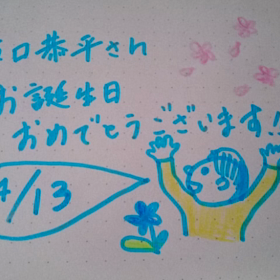 口恭平さん
お誕生日
おめでとうございます!!
4/13